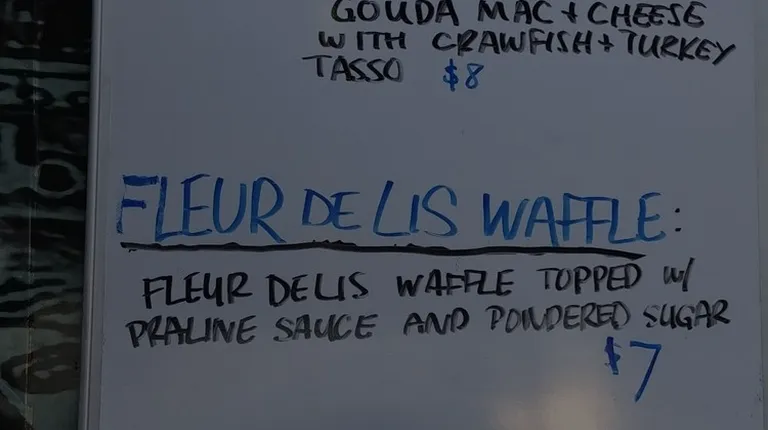 GOUDA MAC + CHEESE
WITH CRAWFISH + TURKEY
TASSO $8
FLEUR DE LIS WAFFLE:
FLEUR DE LIS WAFFLE TOPPED w/
PRALINE SAUCE AND POWDERED SUGAR
$7